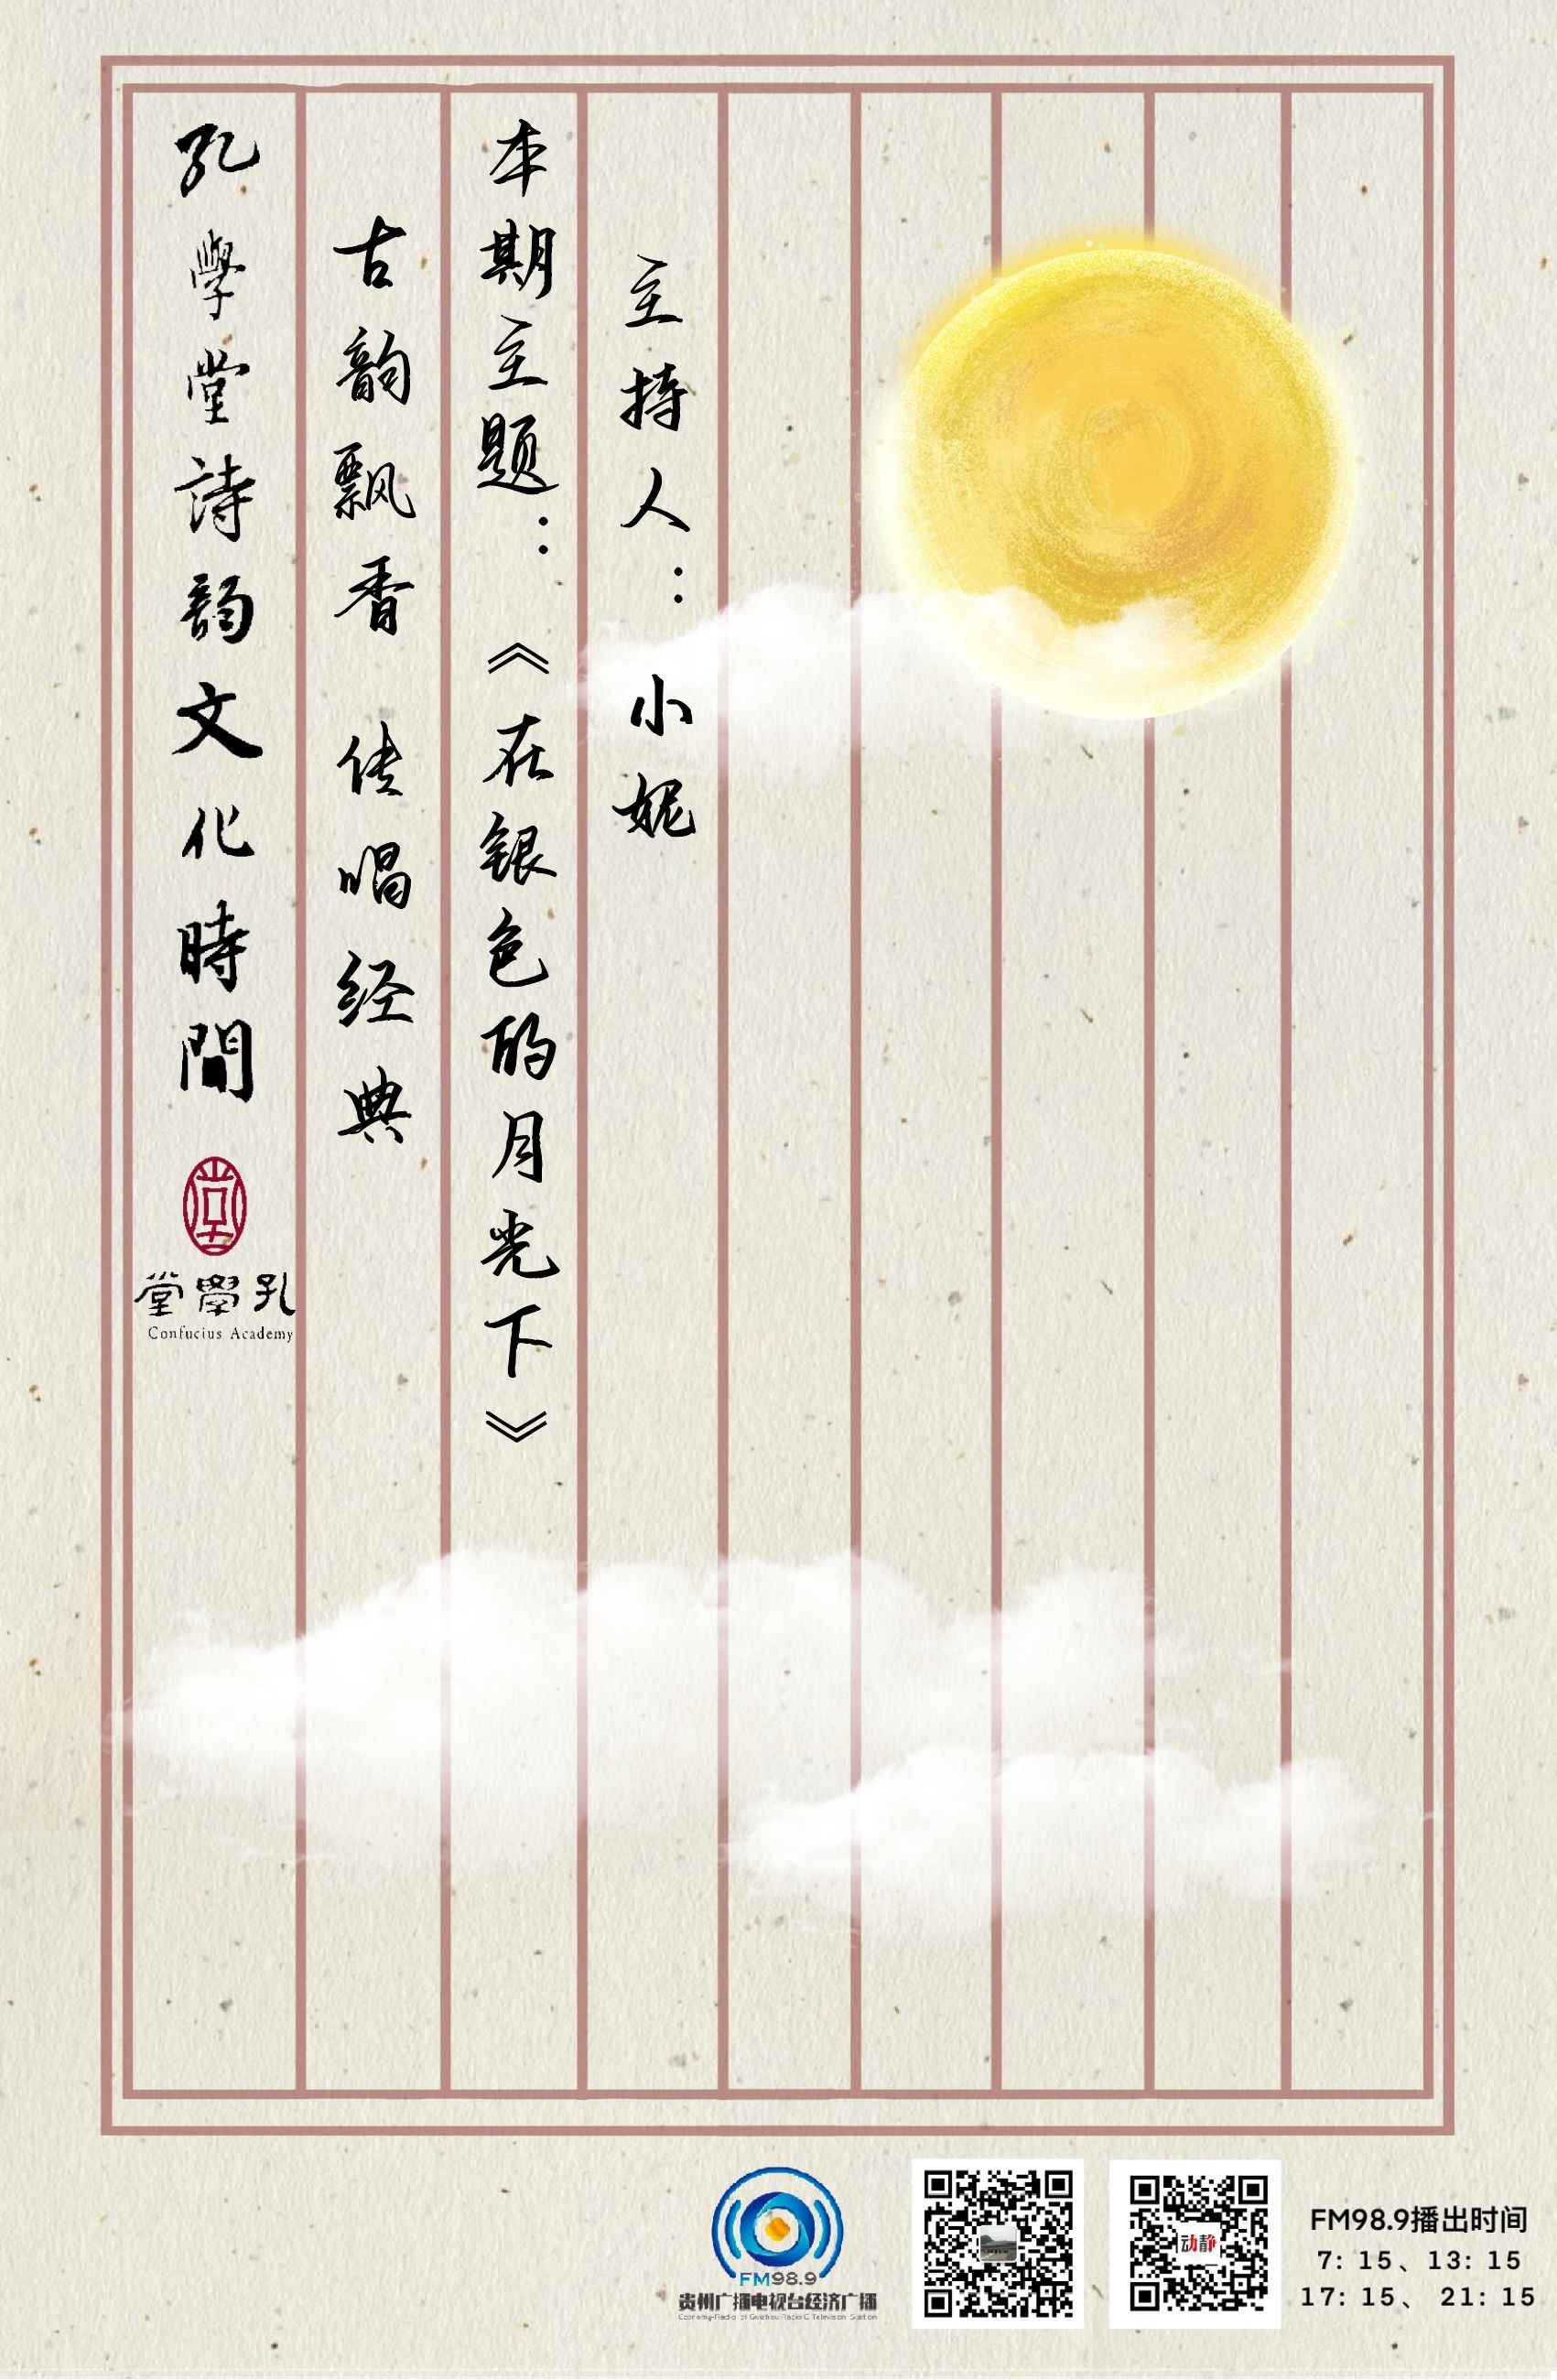 孔學堂詩韵文化時間
堂學孔
Confucius Academy
古韵飘香 传唱经典
本期主题：《在银色的月光下》
主持人：小妮
FM98.9
贵州广播电视台经济广播
动静
FM98.9播出时间
7: 15、13: 15
17: 15、 21: 15